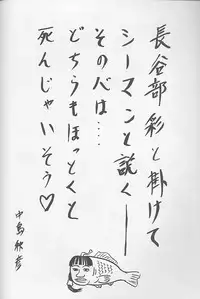 長谷部彩と掛けて
シーマンと説く――
その心は…
どちらもほっとくと
死んじゃいそう♡
中島